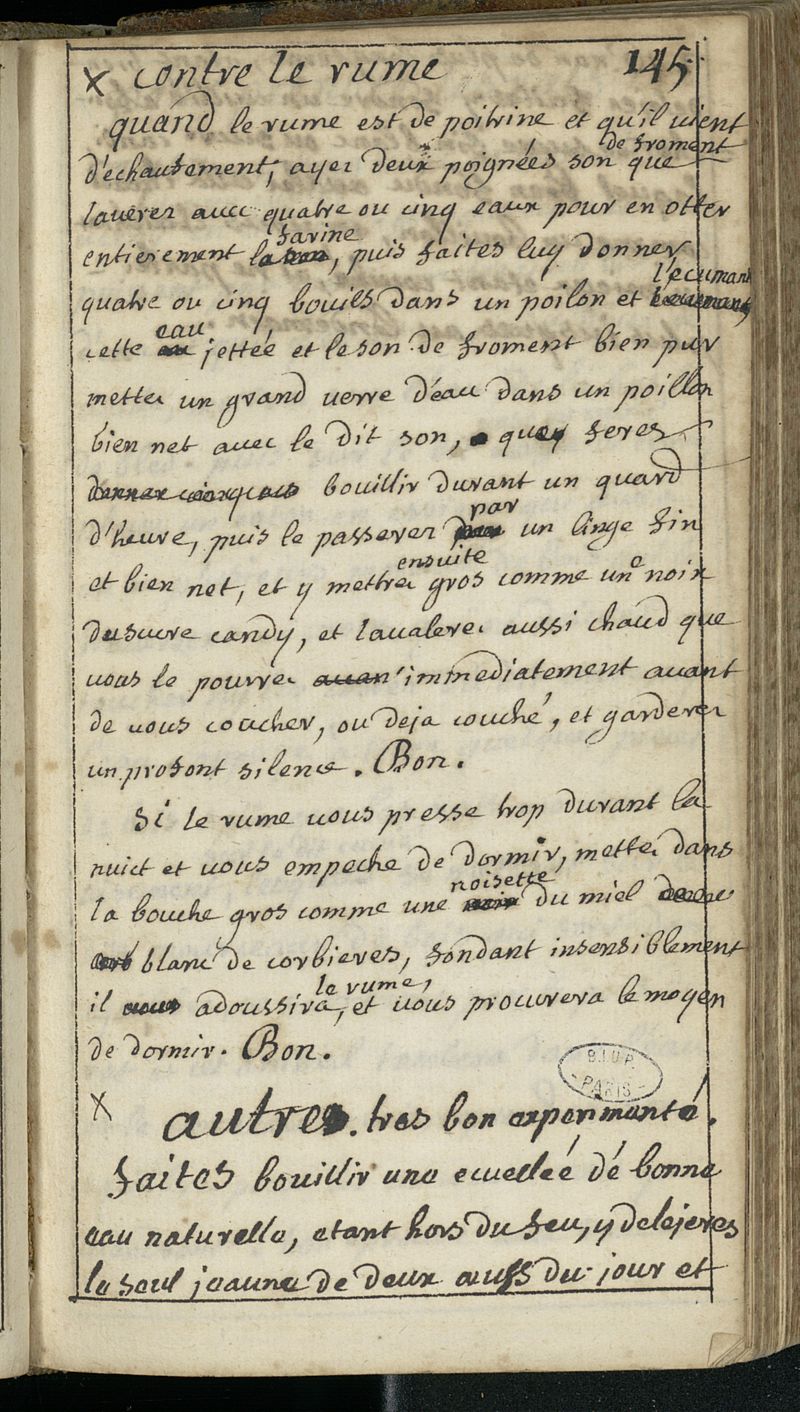 x contre le rume 145.
quand le rume est de poitrine et qu'il vient
de froment
d'echaufement, ayez deux poignées son que
laverez avec quatre ou cinq eaux pour en otter
farine
entierement la, puis faites luy donner
l'ecumant
quatre ou cinq bouils dans un poilon et
eau
cette jettée et le son de froment bien pur
mettez un grand verre d'eau dans un poillon
bien net avec le dit son, quey feres
bouillir durant un quard
par
d'heure, puis le passerez un linge fin
ensuite
et bien net, et y mettrez gros comme une noix
du sucre candy, et l'avalerez aussi chaud que
vous le pourrez immediatement avant
de vous coucher, ou deja couché, et garderez
un profont silence. Bon.
Si le rume vous presse trop durant la
nuict et vous empeche de dormir, mettez dans
noisette
la bouche gros comme une du miel
blanc de corbieres, fondant insensiblement
le rume,
il adoussira, et vous procurera le moyen
de dormir. Bon.
B.I.U.P.
PARIS
x autre. tres bon experimanté.
faites bouillir une ecuelleé dé bonne
eau naturelle, etant hors du feu, y delejeres
le seul jeaune de deux œufs du jour et